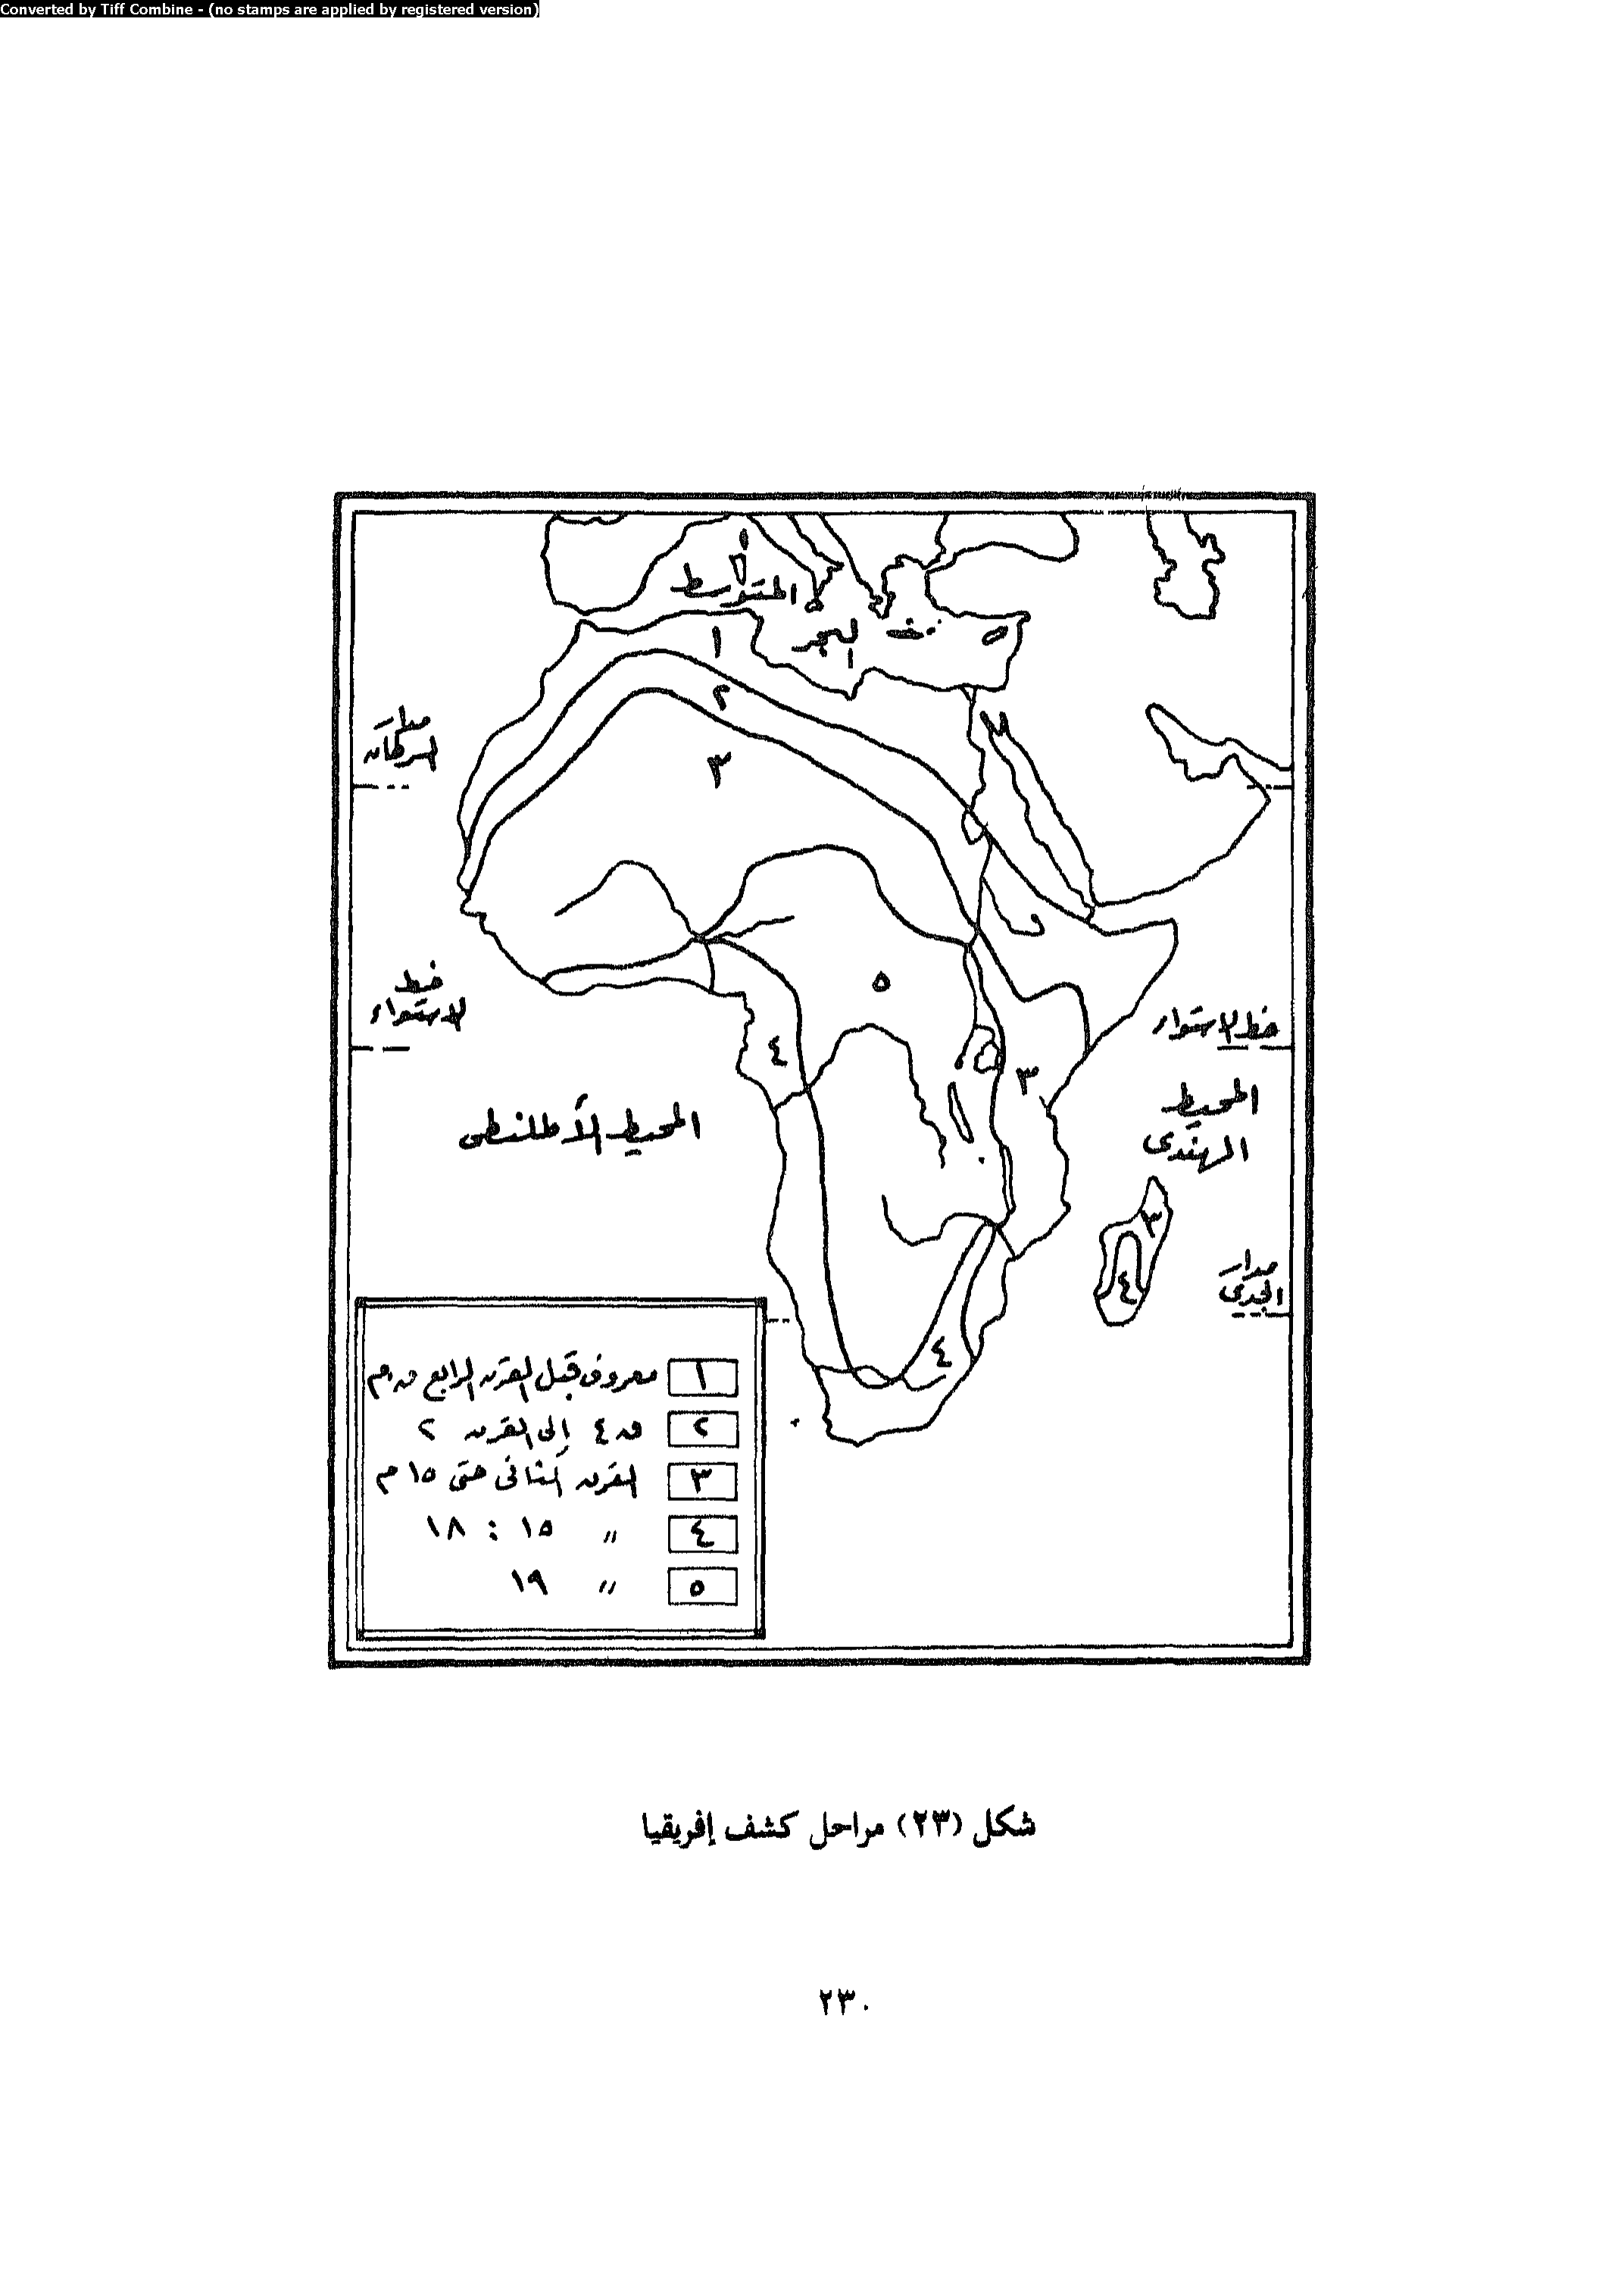 Converted by Tiff Combine - (no stamps are applied by registered version)
البحر
المتوسط
١
٢
٣
مدار
السرطان
خط
الاستواء
خط الاستواء
٥
٤
٣
المحيط
الهندى
المحيط الأطلنطى
٣
٤
مدار
الجدى
٤
١ معروف قبل القرن الرابع ق.م
٢ ق ٤ إلى القرن ٢
٣ القرن الثانى حتى ١٥ م
٤ " ١٥ : ١٨
٥ " ١٩
شكل (٢٣) مراحل كشف إفريقيا
٢٣٠